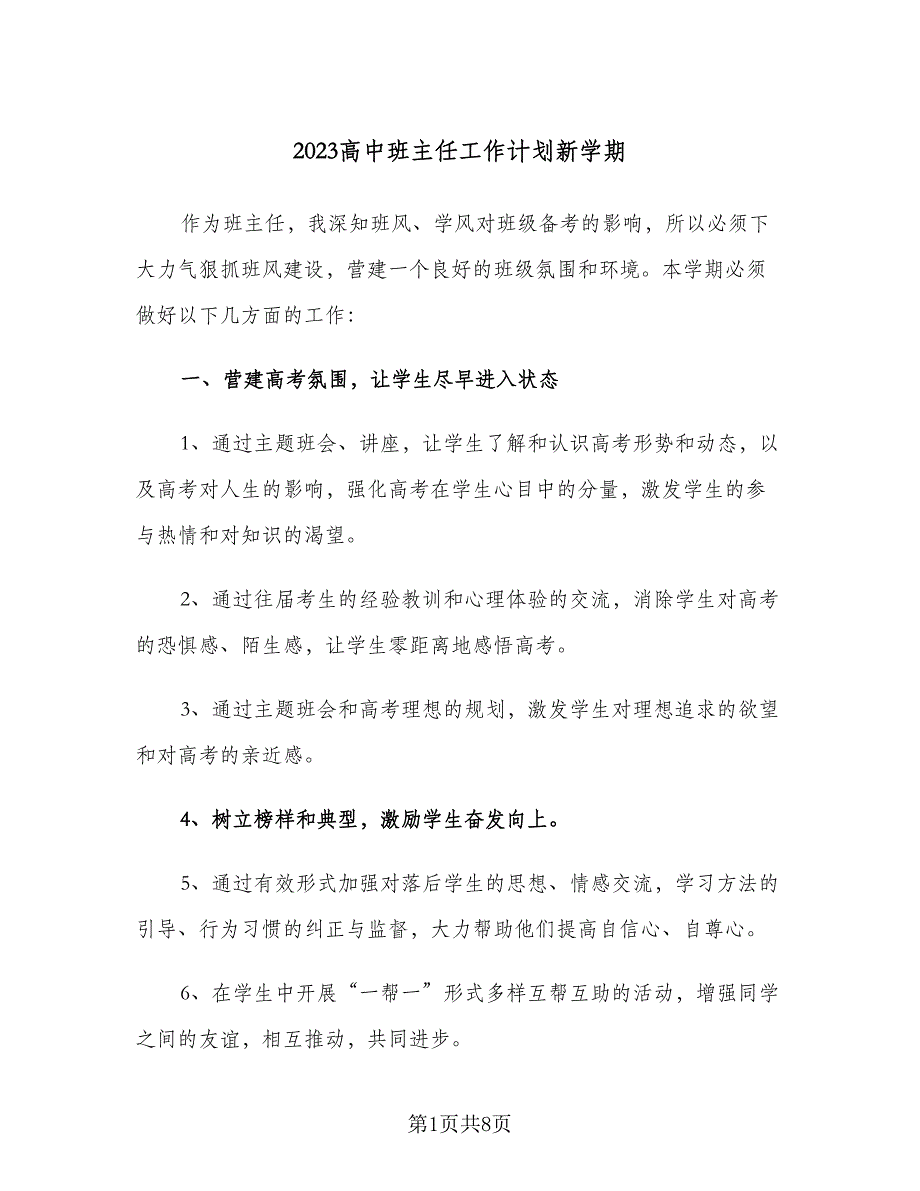 2023高中班主任工作计划新学期
作为班主任，我深知班风、学风对班级备考的影响，所以必须下
大力气狠抓班风建设，营建一个良好的班级氛围和环境。本学期必须
做好以下几方面的工作：
一、营建高考氛围，让学生尽早进入状态
1、通过主题班会、讲座，让学生了解和认识高考形势和动态，以
及高考对人生的影响，强化高考在学生心目中的分量，激发学生的参
与热情和对知识的渴望。
2、通过往届考生的经验教训和心理体验的交流，消除学生对高考
的恐惧感、陌生感，让学生零距离地感悟高考。
3、通过主题班会和高考理想的规划，激发学生对理想追求的欲望
和对高考的亲近感。
4、树立榜样和典型，激励学生奋发向上。
5、通过有效形式加强对落后学生的思想、情感交流，学习方法的
引导、行为习惯的纠正与监督，大力帮助他们提高自信心、自尊心。
6、在学生中开展“一帮一”形式多样互帮互助的活动，增强同学
之间的友谊，相互推动，共同进步。
第1页共8页